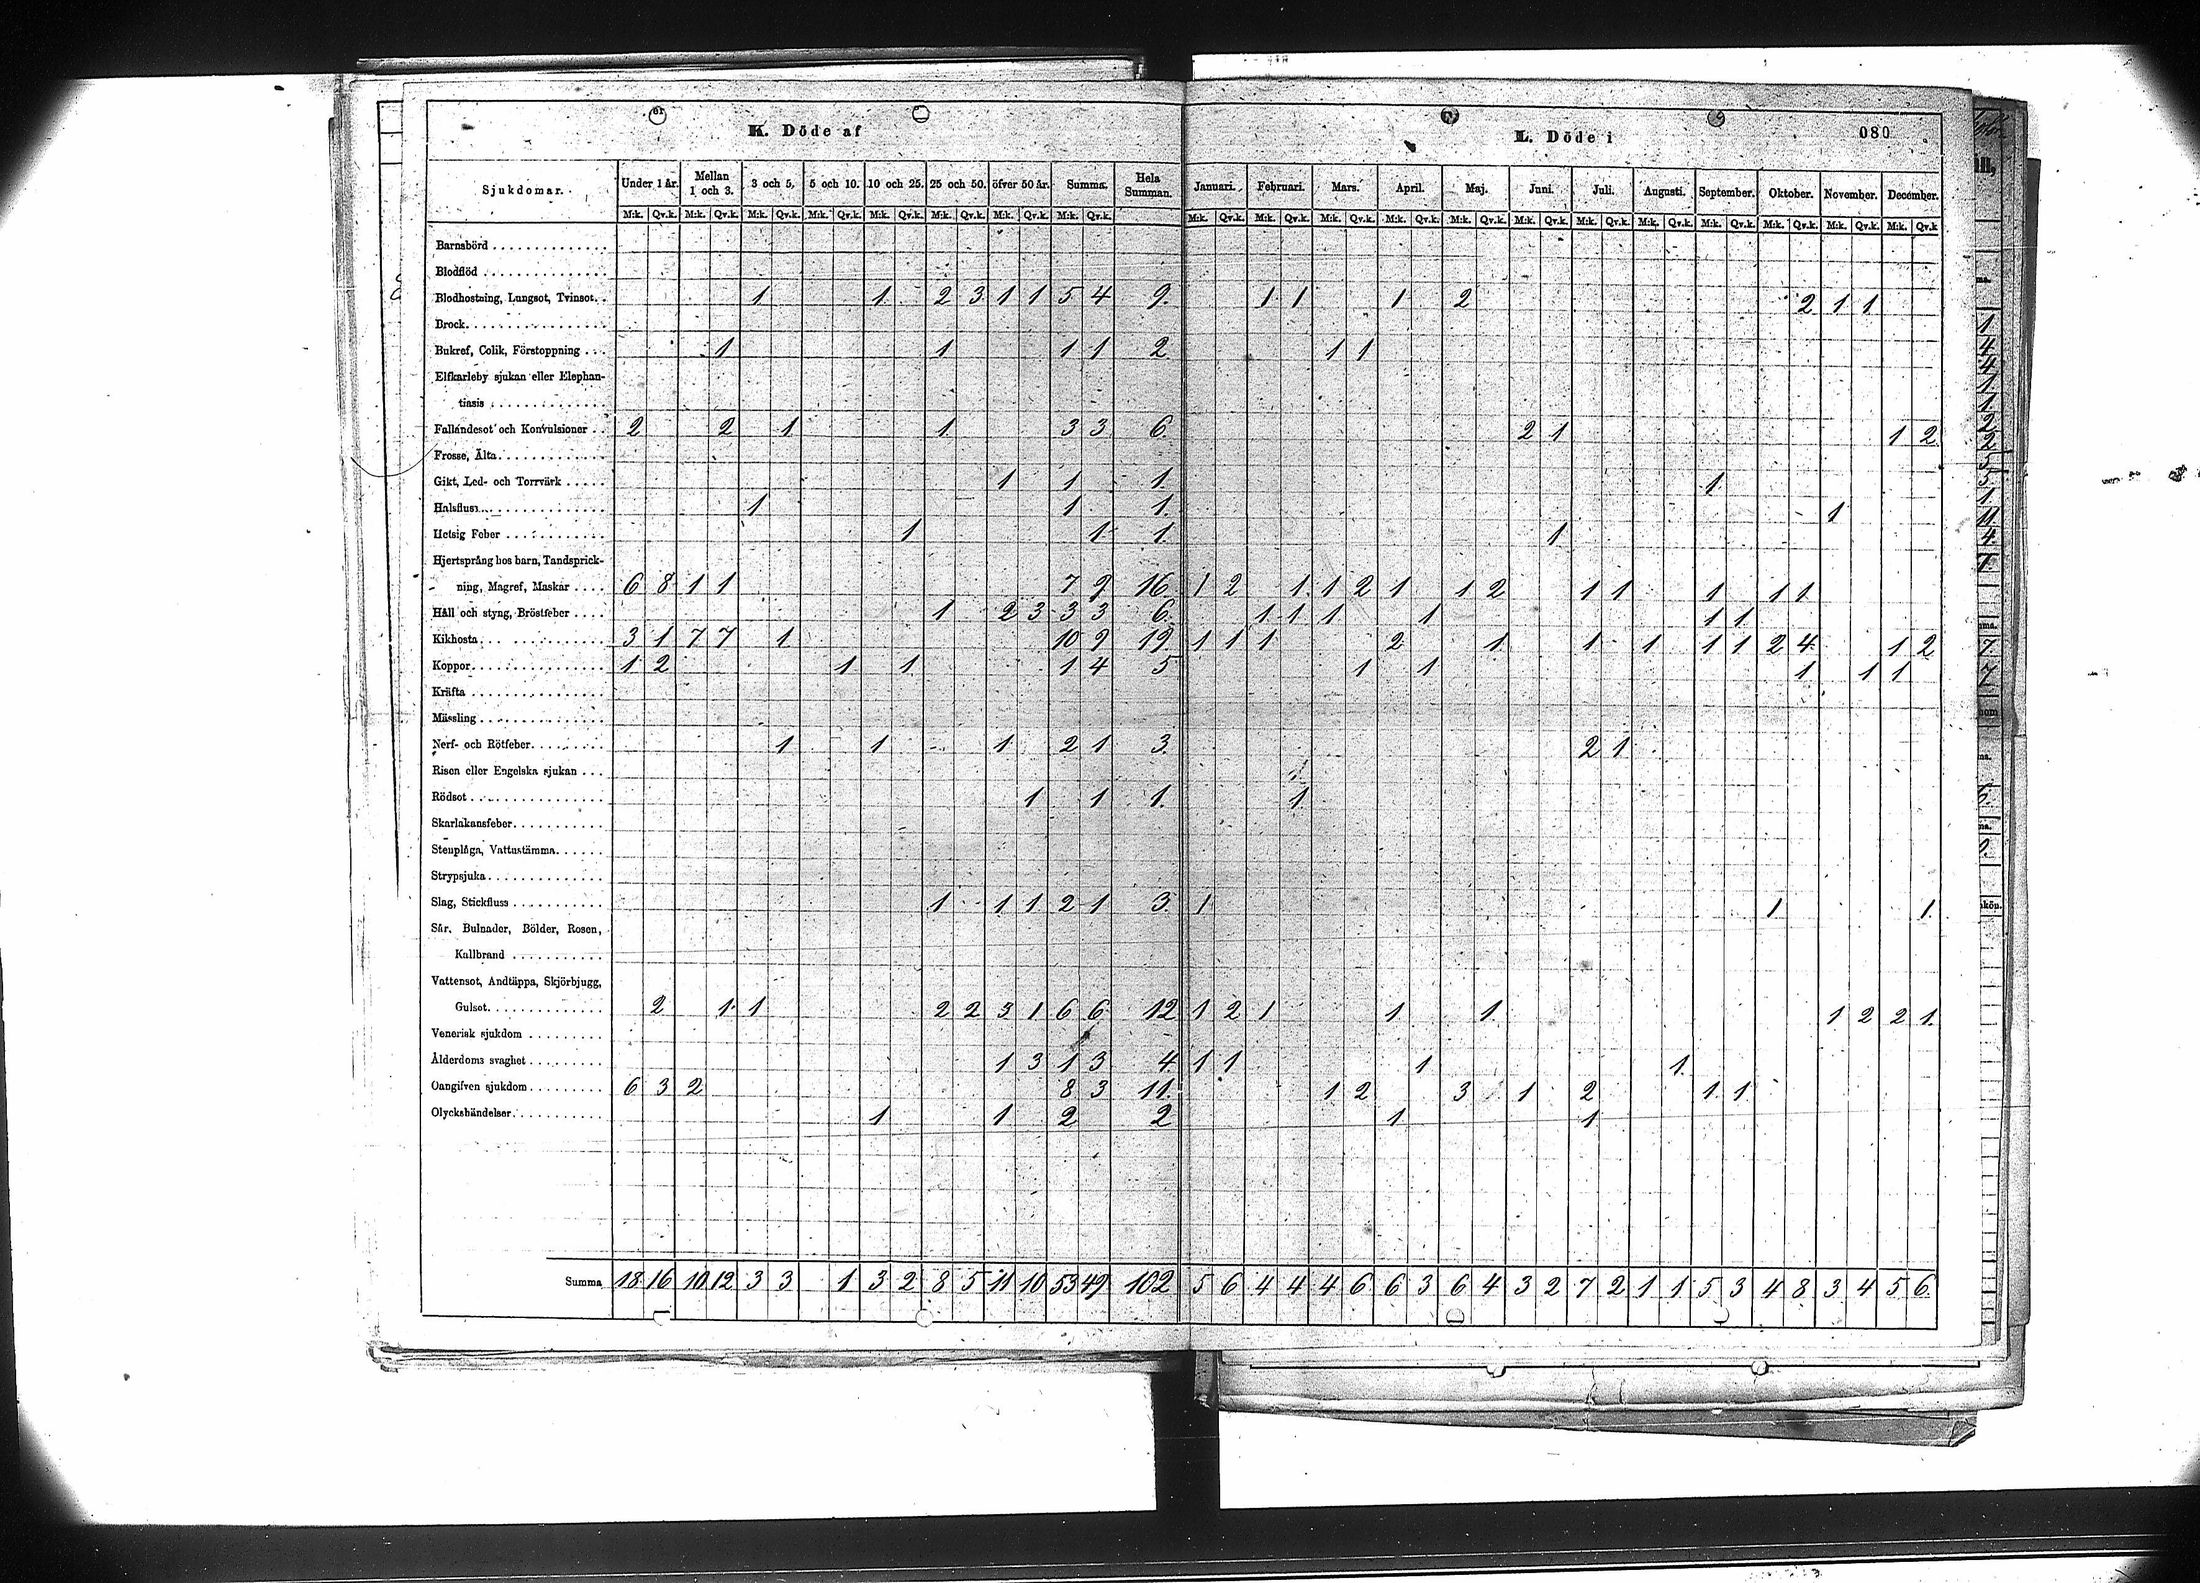 K. Döde af
L. Döde i
080
Sjukdomar. Under 1 år. Mellan 1 och 3. 3 och 5. 5 och 10. 10 och 25. 25 och 50. öfver 50 år. Summa. Hela Summan. Januari. Februari. Mars. April. Maj. Juni. Juli. Augusti. September. Oktober. November. December.
M:k. Qv.k. M:k. Qv.k. M:k. Qv.k. M:k. Qv.k. M:k. Qv.k. M:k. Qv.k. M:k. Qv.k. M:k. Qv.k. M:k. Qv.k. M:k. Qv.k. M:k. Qv.k. M:k. Qv.k. M:k. Qv.k. M:k. Qv.k. M:k. Qv.k. M:k. Qv.k. M:k. Qv.k. M:k. Qv.k. M:k. Qv.k. M:k. Qv.k
Barnsbörd
Blodflöd
Blodhostning, Lungsot, Tvinsot. 1 1 2 3 1 1 5 4 9. 1 1 1 2 2 1 1
Brock
Bukref, Colik, Förstoppning 1 1 1 1 2 1 1
Elfkarleby sjukan eller Elephan-
tiasis
Fallandesot och Konvulsioner 2 2 1 1 3 3 6. 2 1 1 2
Frosse, Älta
Gikt, Led- och Torrvärk 1 1 1. 1
Halsfluss 1 1 1. 1
Hetsig Feber 1 1 1. 1
Hjertsprång hos barn, Tandsprick-
ning, Magref, Maskar 6 8 1 1 7 9 16 1 2 1 1 2 1 1 2 1 1 1 1 1
Håll och styng, Bröstfeber 1 2 3 3 3 6. 1 1 1 1 1 1
Kikhosta 3 1 7 7 1 10 9 19 1 1 1 2 1 1 1 1 1 2 4 1 2
Koppor 1 2 1 1 1 4 5 1 1 1 1 1
Kräfta
Mässling
Nerf- och Rötfeber 1 1 1 2 1 3. 2 1
Risen eller Engelska sjukan
Rödsot 1 1 1. 1
Skarlakansfeber
Stenplåga, Vattustämma
Strypsjuka
Slag, Stickfluss 1 1 1 2 1 3. 1 1 1.
Sår. Bulnader, Bölder, Rosen,
Kallbrand
Vattensot, Andtäppa, Skjörbjugg,
Gulsot 2 1 1 2 2 3 1 6 6 12 1 2 1 1 1 1 2 2 1.
Venerisk sjukdom
Ålderdoms svaghet 1 3 1 3 4 1 1 1 1
Oangifven sjukdom 6 3 2 8 3 11. 1 2 3 1 2 1 1
Olyckshändelser 1 1 2 2 1 1
Summa 18 16 10 12 3 3 1 3 2 8 5 11 10 53 49 102 5 6 4 4 4 6 6 3 6 4 3 2 7 2 1 1 5 3 4 8 3 4 5 6.